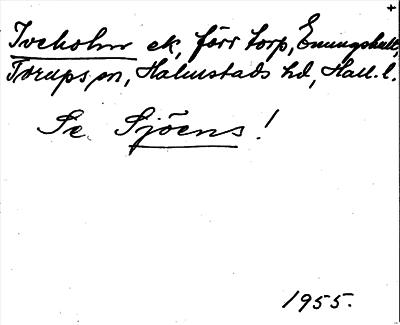 +
Iveholm ek, förr torp, Ennungshult,
Torups sn, Halmstads hd, Hall. l.
Se Sjöens!
1955.